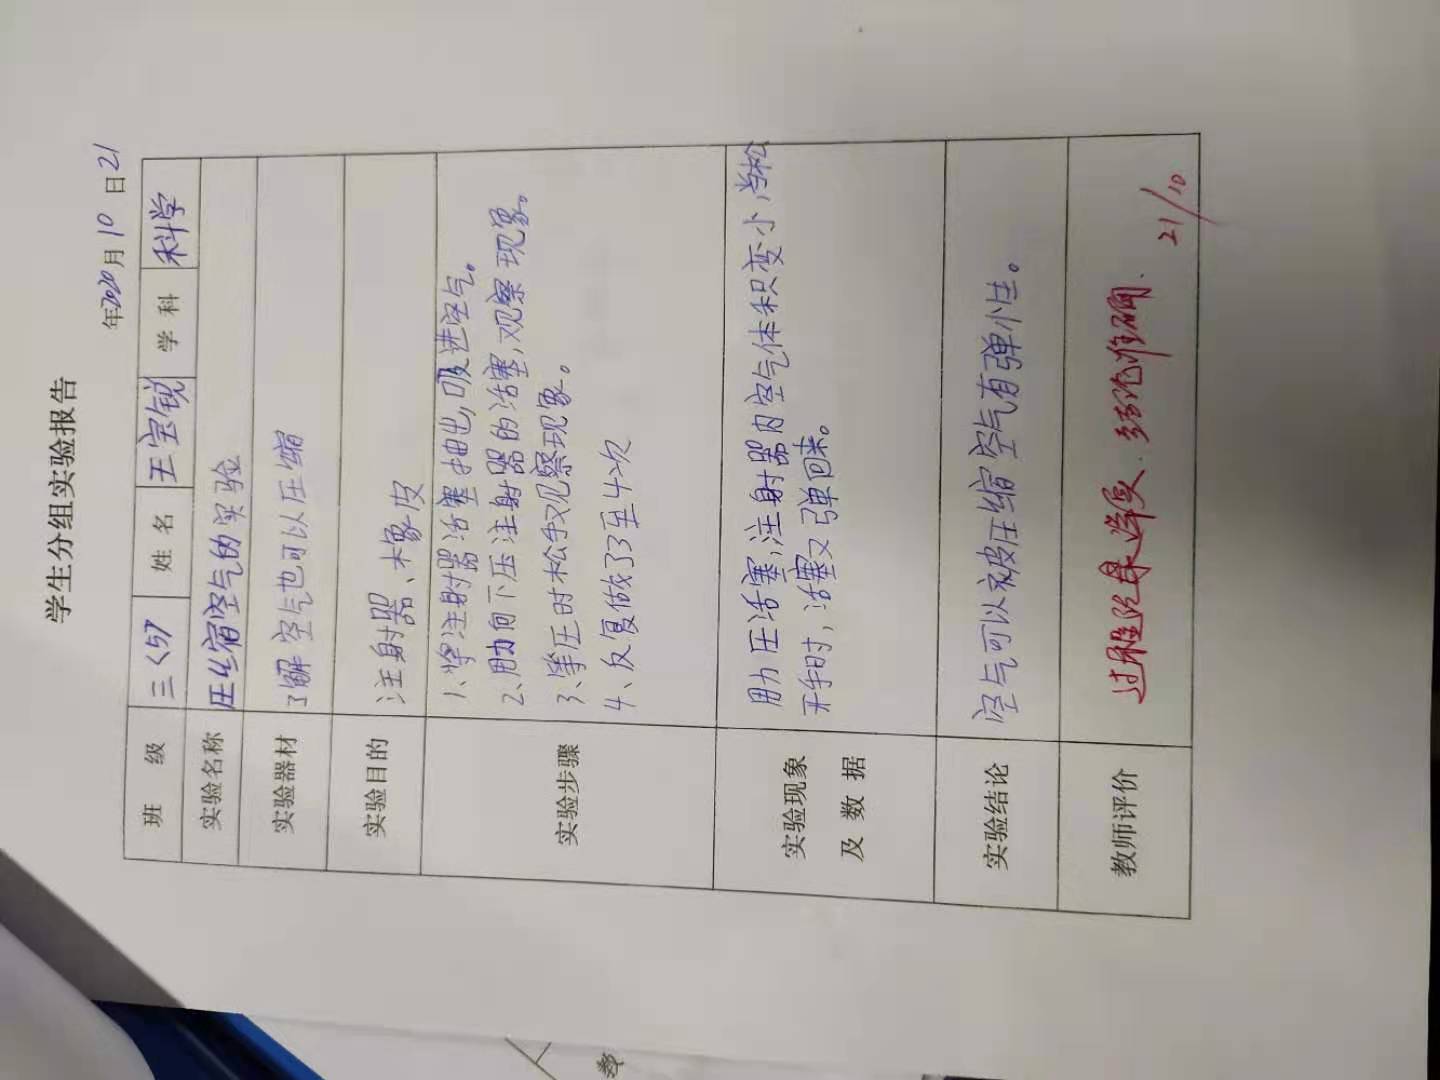 学生分组实验报告
年2020月10日21
班级 三<5> 姓名 王宝锐 学科 科学
实验名称 压缩空气的实验
实验器材 了解空气也可以压缩
实验目的 注射器、橡皮
实验步骤 1、将注射器活塞抽出,吸进空气。
2、用力向下压注射器的活塞,观察现象。
3、挤压时松手又观察现象。
4、反复做了3至4次
实验现象及数据 用力压活塞,注射器内空气体积变小,当松
开手时,活塞又弹回来。
实验结论 空气可以被压缩空气有弹性。
教师评价 结论准确.
21/10